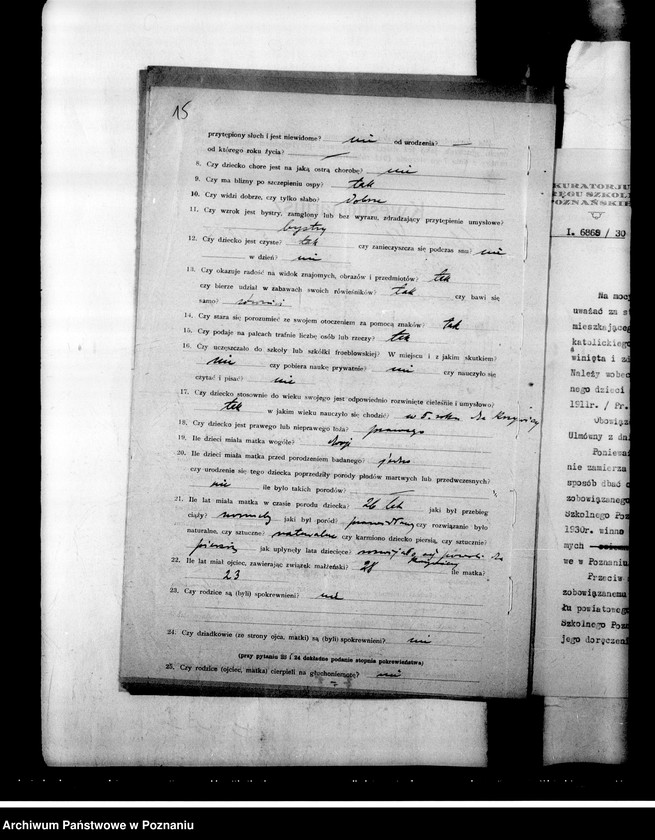 15
przytępiony słuch i jest niewidome? nie od urodzenia? —
od którego roku życia? —
8. Czy dziecko chore jest na jaką ostrą chorobę? nie
9. Czy ma blizny po szczepieniu ospy? tak
10. Czy widzi dobrze, czy tylko słabo? dobrze
11. Czy wzrok jest bystry, zamglony lub bez wyrazu, zdradzający przytępienie umysłowe?
bystry
12. Czy dziecko jest czyste? tak czy zanieczyszcza się podczas snu? nie
w dzień? nie
13. Czy okazuje radość na widok znajomych, obrazów i przedmiotów? tak
czy bierze udział w zabawach swoich rówieśników? tak czy bawi się
samo?
14. Czy stara się porozumieć ze swojem otoczeniem za pomocą znaków? tak
15. Czy podaje na palcach trafnie liczbę osób lub rzeczy? tak
16. Czy uczęszczało do szkoły lub szkółki froeblowskiej? W miejscu i z jakim skutkiem?
nie czy pobiera naukę prywatnie? nie czy nauczyło się
czytać i pisać? nie
17. Czy dziecko stosownie do wieku swojego jest odpowiednio rozwinięte cieleśnie i umysłowo?
tak w jakim wieku nauczyło się chodzić? w 5. roku
18. Czy dziecko jest prawego lub nieprawego łoża? prawego
19. Ile dzieci miała matka wogóle?
20. Ile dzieci miała matka przed porodzeniem badanego? jedno
czy urodzenie się tego dziecka poprzedziły porody płodów martwych lub przedwczesnych?
nie ile było takich porodów?
21. Ile lat miała matka w czasie porodu dziecka? 26 lat jaki był przebieg
ciąży? normalny jaki był poród? prawidłowy czy rozwiązanie było
naturalne, czy sztuczne? naturalne czy karmiono dziecko piersią, czy sztucznie?
piersią jak upłynęły lata dziecięce?
22. Ile lat miał ojciec, zawierając związek małżeński? 28 ile matka?
23
23. Czy rodzice są (byli) spokrewnieni? nie
24. Czy dziadkowie (ze strony ojca, matki) są (byli) spokrewnieni? nie
(przy pytaniu 23 i 24 dokładne podanie stopnia pokrewieństwa)
25. Czy rodzice (ojciec, matka) cierpieli na głuchoniemotę? nie
KURATORJU
RĘGU SZKOL
POZNAŃSKIE
I. 6868 / 30
Na mocy
uważać za
mieszkającego
katolickiego
winięta i
Należy wobec
nego dzieci
1911r. / Pr.
Obowiąz
Ulmówny z dni
Ponieważ
nie zamierza
sposób dbać o
zobowiązanego
Szkolnego Poz
1930r. winno
mych
we w Poznaniu
Przeciw
zobowiązanemu
łu powiatowego
Szkolnego Pozn
jego doręczeni
Archiwum Państwowe w Poznaniu